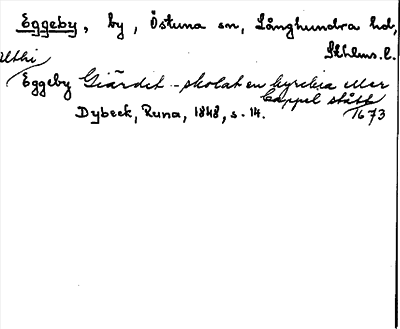 Eggeby, by, Östuna sn, Långhundra hd,
Sthlms. l.
Uthi
Eggeby Giärdet - skolat en kyrckia eller
Cappel stått
1673
Dybeck, Runa, 1848, s. 14.